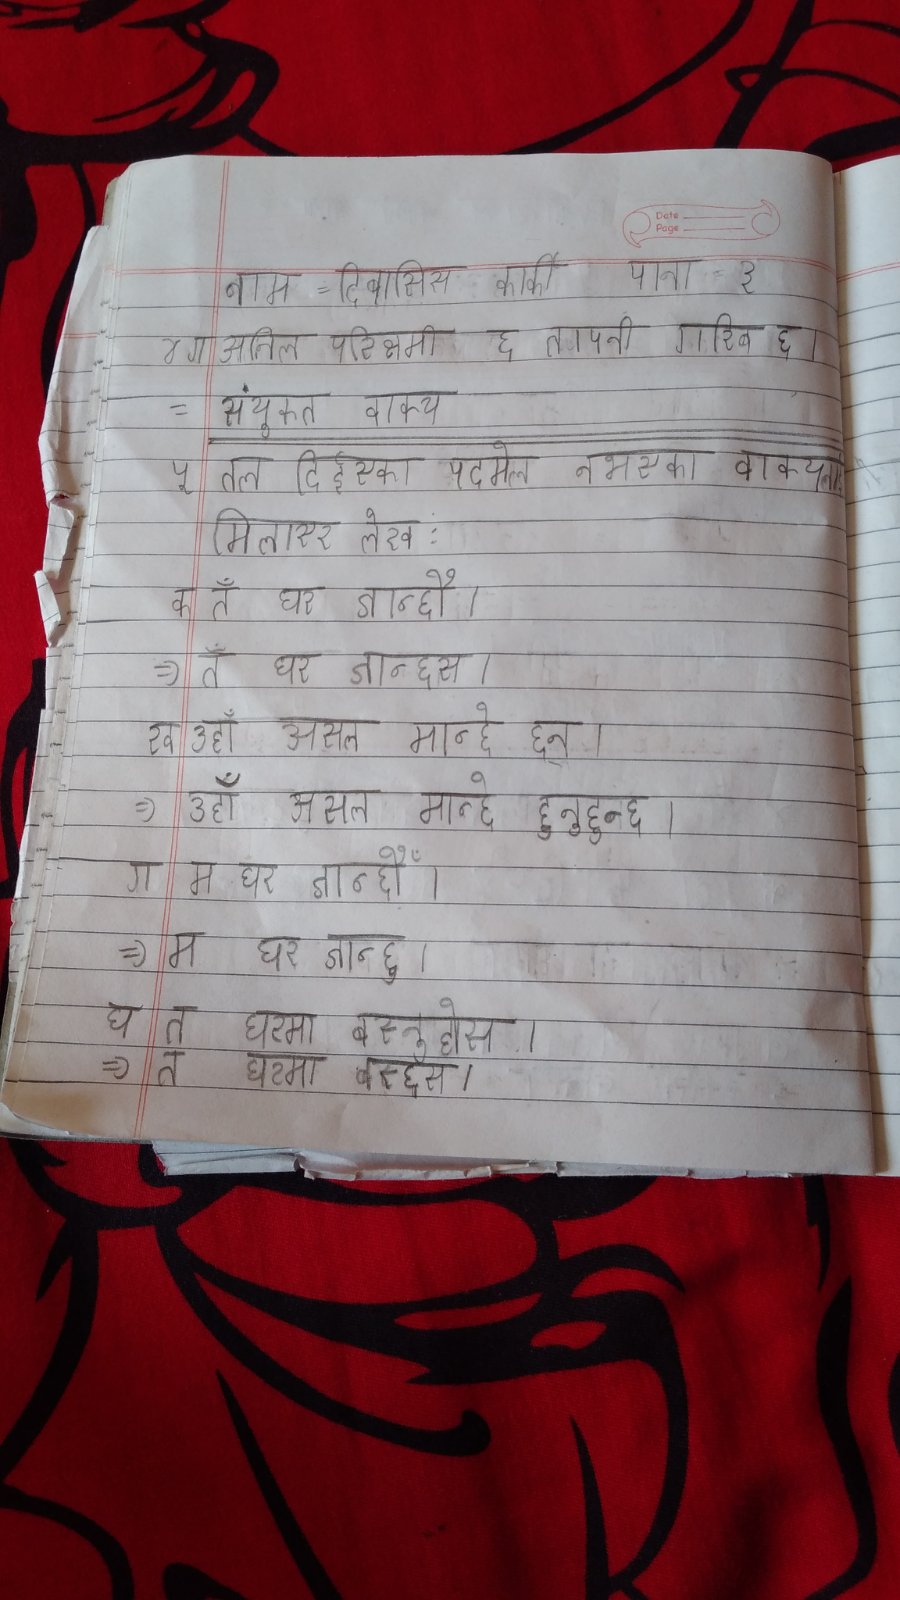 Date
Page
नाम = दिवासिस कार्की पाना = ३
४ ग अनिल परिश्रमी छ तापनी गारिब छ।
= संयुक्त वाक्य
५ तल दिईएका पदमेल नभएका वाक्यलाई
मिलाएर लेख :
क तँ घर जान्छौँ।
⇒ तँ घर जान्छस।
ख उहाँ असल मान्छे छन्।
⇒ उहाँ असल मान्छे हुनुहुन्छ।
ग म घर जान्छौँ।
⇒ म घर जान्छु।
घ त घरमा बस्नुहोस।
⇒ त घरमा बस्छस।